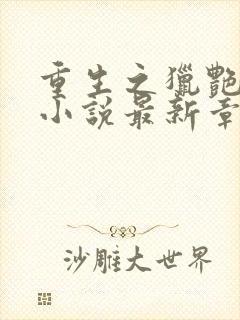 重生之獵艷
小說最新章
沙雕大世界